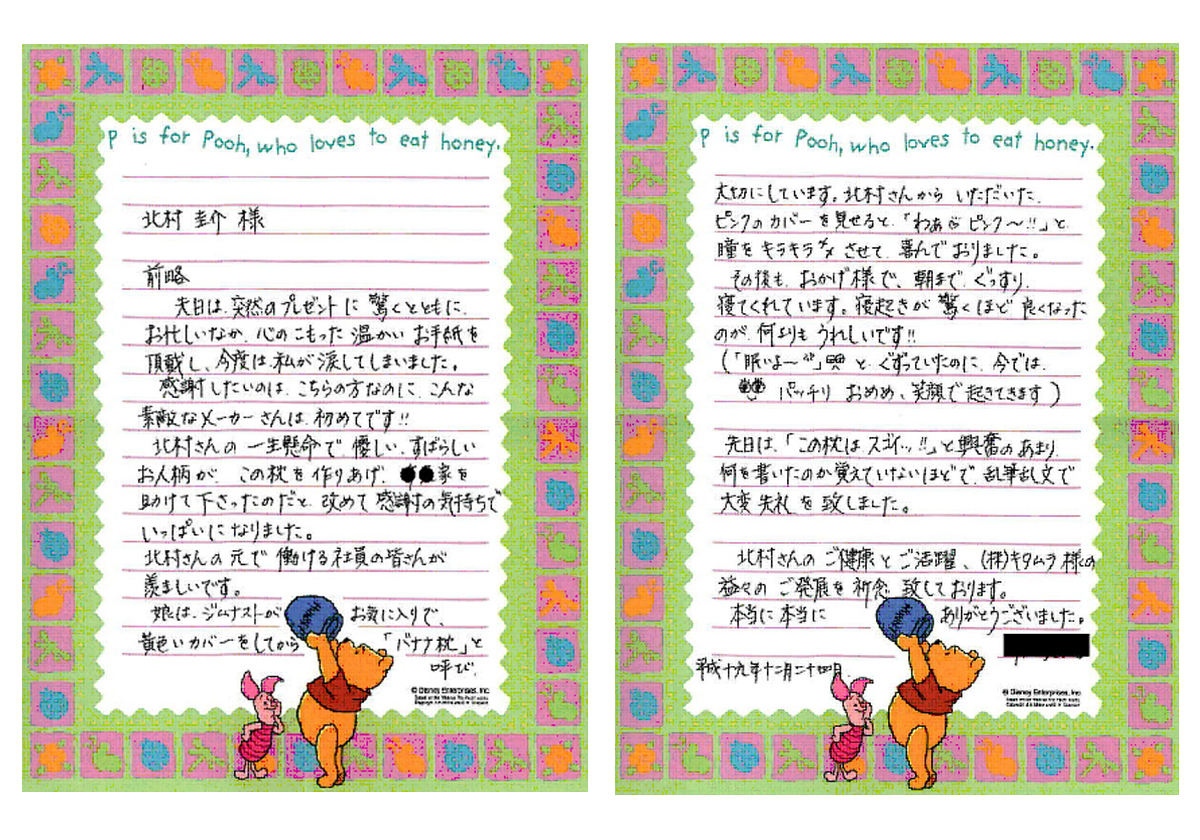 P is for Pooh, who loves to eat honey.
北村 圭介 様
前略
先日は、突然のプレゼントに 驚くとともに、
お忙しいなか、心のこもった 温かい お手紙を
頂戴し、今度は、私が涙してしまいました。
感謝したいのは、こちらの方なのに、こんな
素敵なメーカーさんは、初めてです!!
北村さんの 一生懸命で、優しい、すばらしい
お人柄が、この枕を作りあげ、●●家を
助けて下さったのだと、改めて 感謝の気持ちで
いっぱいになりました。
北村さんの元で 働ける社員の皆さんが
羨ましいです。
娘は、ジムナストが お気に入りで、
黄色いカバーをしてから 「バナナ枕」と
呼び、
© Disney Enterprises, Inc.
P is for Pooh, who loves to eat honey.
大切にしています。北村さんから いただいた、
ピンクのカバーを見せると、「わぁ ピンク〜!!」と、
瞳を キラキラ させて、喜んでおりました。
その後も、おかげ様で、朝まで、ぐっすり、
寝てくれています。寝起きが 驚くほど 良くなった
のが、何よりも うれしいです!!
(「眠いよ〜」 と、ぐずっていたのに、今では、
パッチリ おめめ、笑顔で起きてきます)
先日は、「この枕は、スゴイッ!!」と興奮のあまり、
何を書いたのか覚えていないほどで、乱筆乱文で
大変 失礼を 致しました。
北村さんの ご健康と ご活躍、(株)キタムラ 様の
益々の ご発展を 祈念 致しております。
本当に 本当に ありがとうございました。
平成十九年十二月二十四日
© Disney Enterprises, Inc.